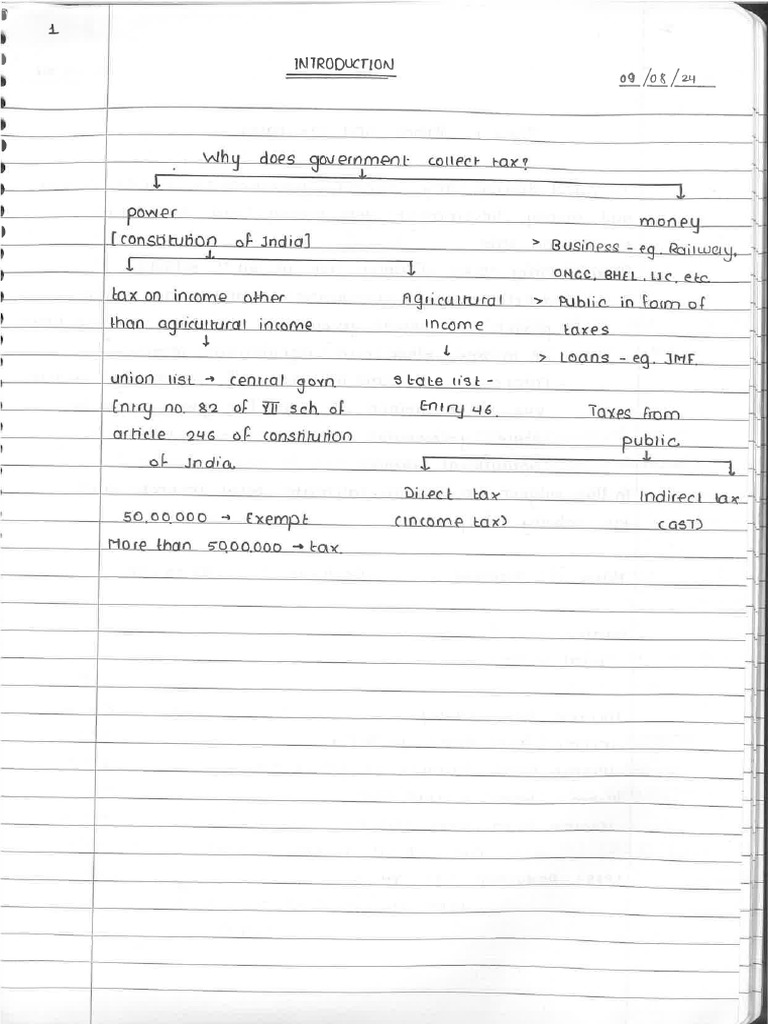 1
INTRODUCTION
09/08/24
Why does government collect tax?
power
[constitution of India]
tax on income other
than agricultural income
union list → central govn
Entry no. 82 of VII sch. of
article 246 of constitution
of India.
50,00,000 → Exempt
More than 50,00,000 → tax.
Agricultural
Income
state list -
Entry 46.
money
> Business - eg. Railway,
ONGC, BHEL, LIC, etc
> Public in form of
taxes
> Loans - eg. IMF.
Taxes from
public
Direct tax
(Income tax)
Indirect tax
(GST)